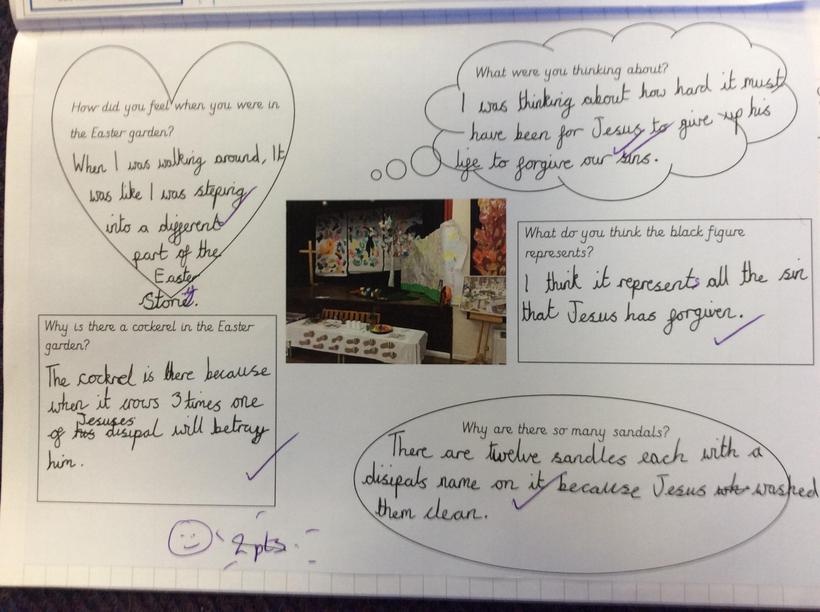 How did you feel when you were in
the Easter garden?
When I was walking around, It
was like I was steping
into a different
part of the
Easter
Story.
What were you thinking about?
I was thinking about how hard it must
have been for Jesus to give up his
life to forgive our sins.
What do you think the black figure
represents?
I think it represents all the sin
that Jesus has forgiven.
Why is there a cockerel in the Easter
garden?
The cockrel is there because
when it crows 3 times one
Jesuses
of his disipal will betray
him.
Why are there so many sandals?
There are twelve sandles each with a
disipals name on it because Jesus washed
them clean.
2pts.